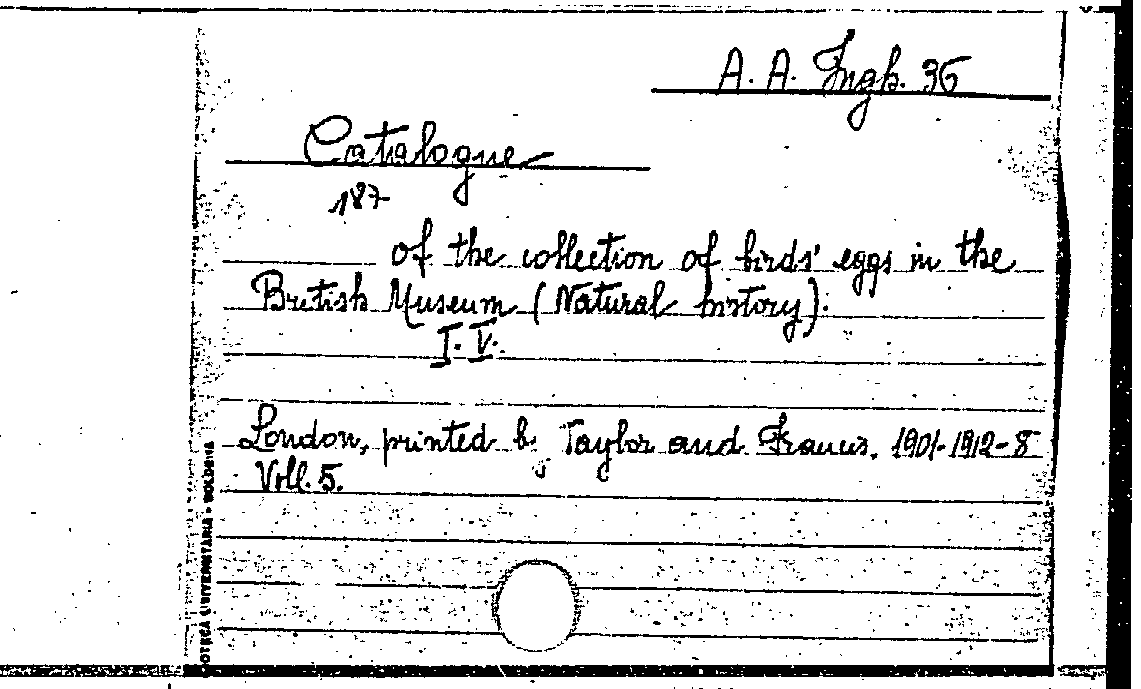 A. A. Ingh. 36
Catalogue
187
of the collection of birds' eggs in the
British Museum (Natural history).
I. V.
London, printed by Taylor and Francis, 1901-1912-8°
Voll. 5.
UNIVERSITARIA - BOLOGNA